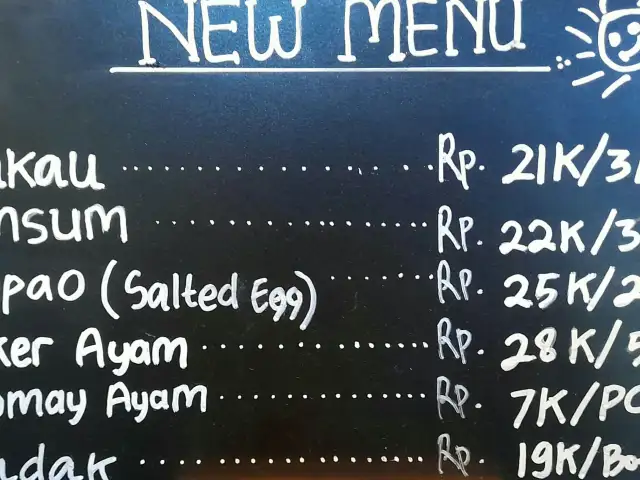 NEW MENU
akau ............... Rp. 21K/3
msum ............... Rp. 22K/3
pao (Salted Egg) ....... Rp. 25K/2
ker Ayam ............... Rp. 28K/5
omay Ayam ............... Rp. 7K/PC
adak ............... Rp. 19K/Bo